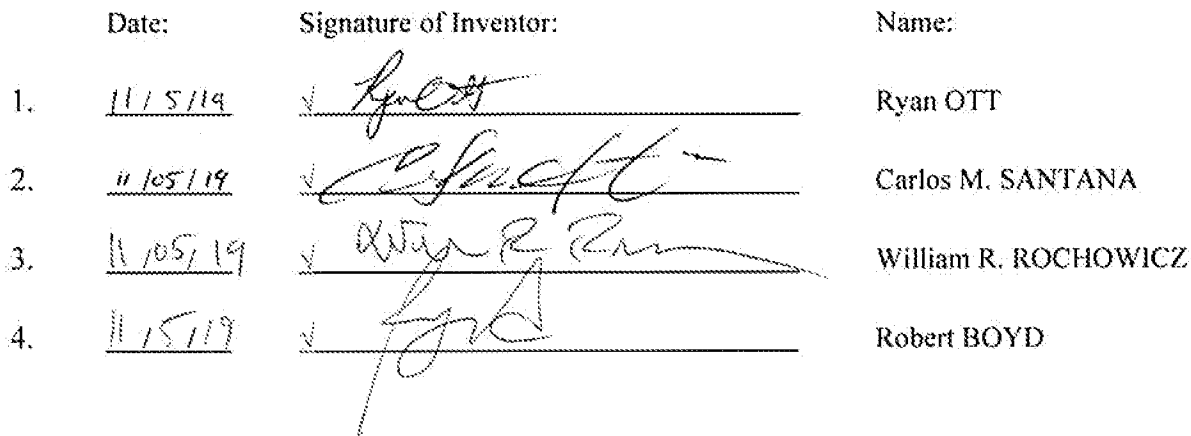 Date: Signature of Inventor: Name:
1. 11/5/19 √ Ryan OTT
2. 11/05/19 √ Carlos M. SANTANA
3. 11/05/19 √ William R. ROCHOWICZ
4. 11/5/19 √ Robert BOYD